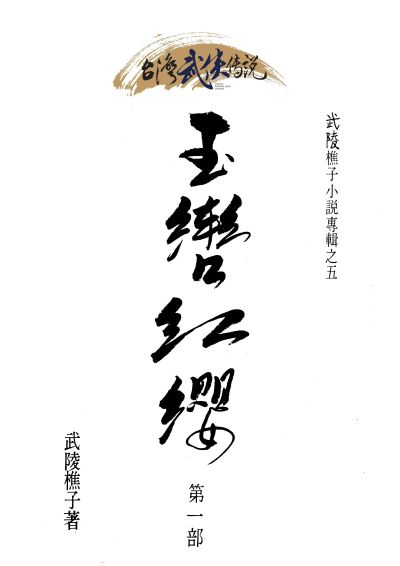 台灣武侠传说
武陵樵子小説專輯之五
玉轡紅纓
第一部
武陵樵子著